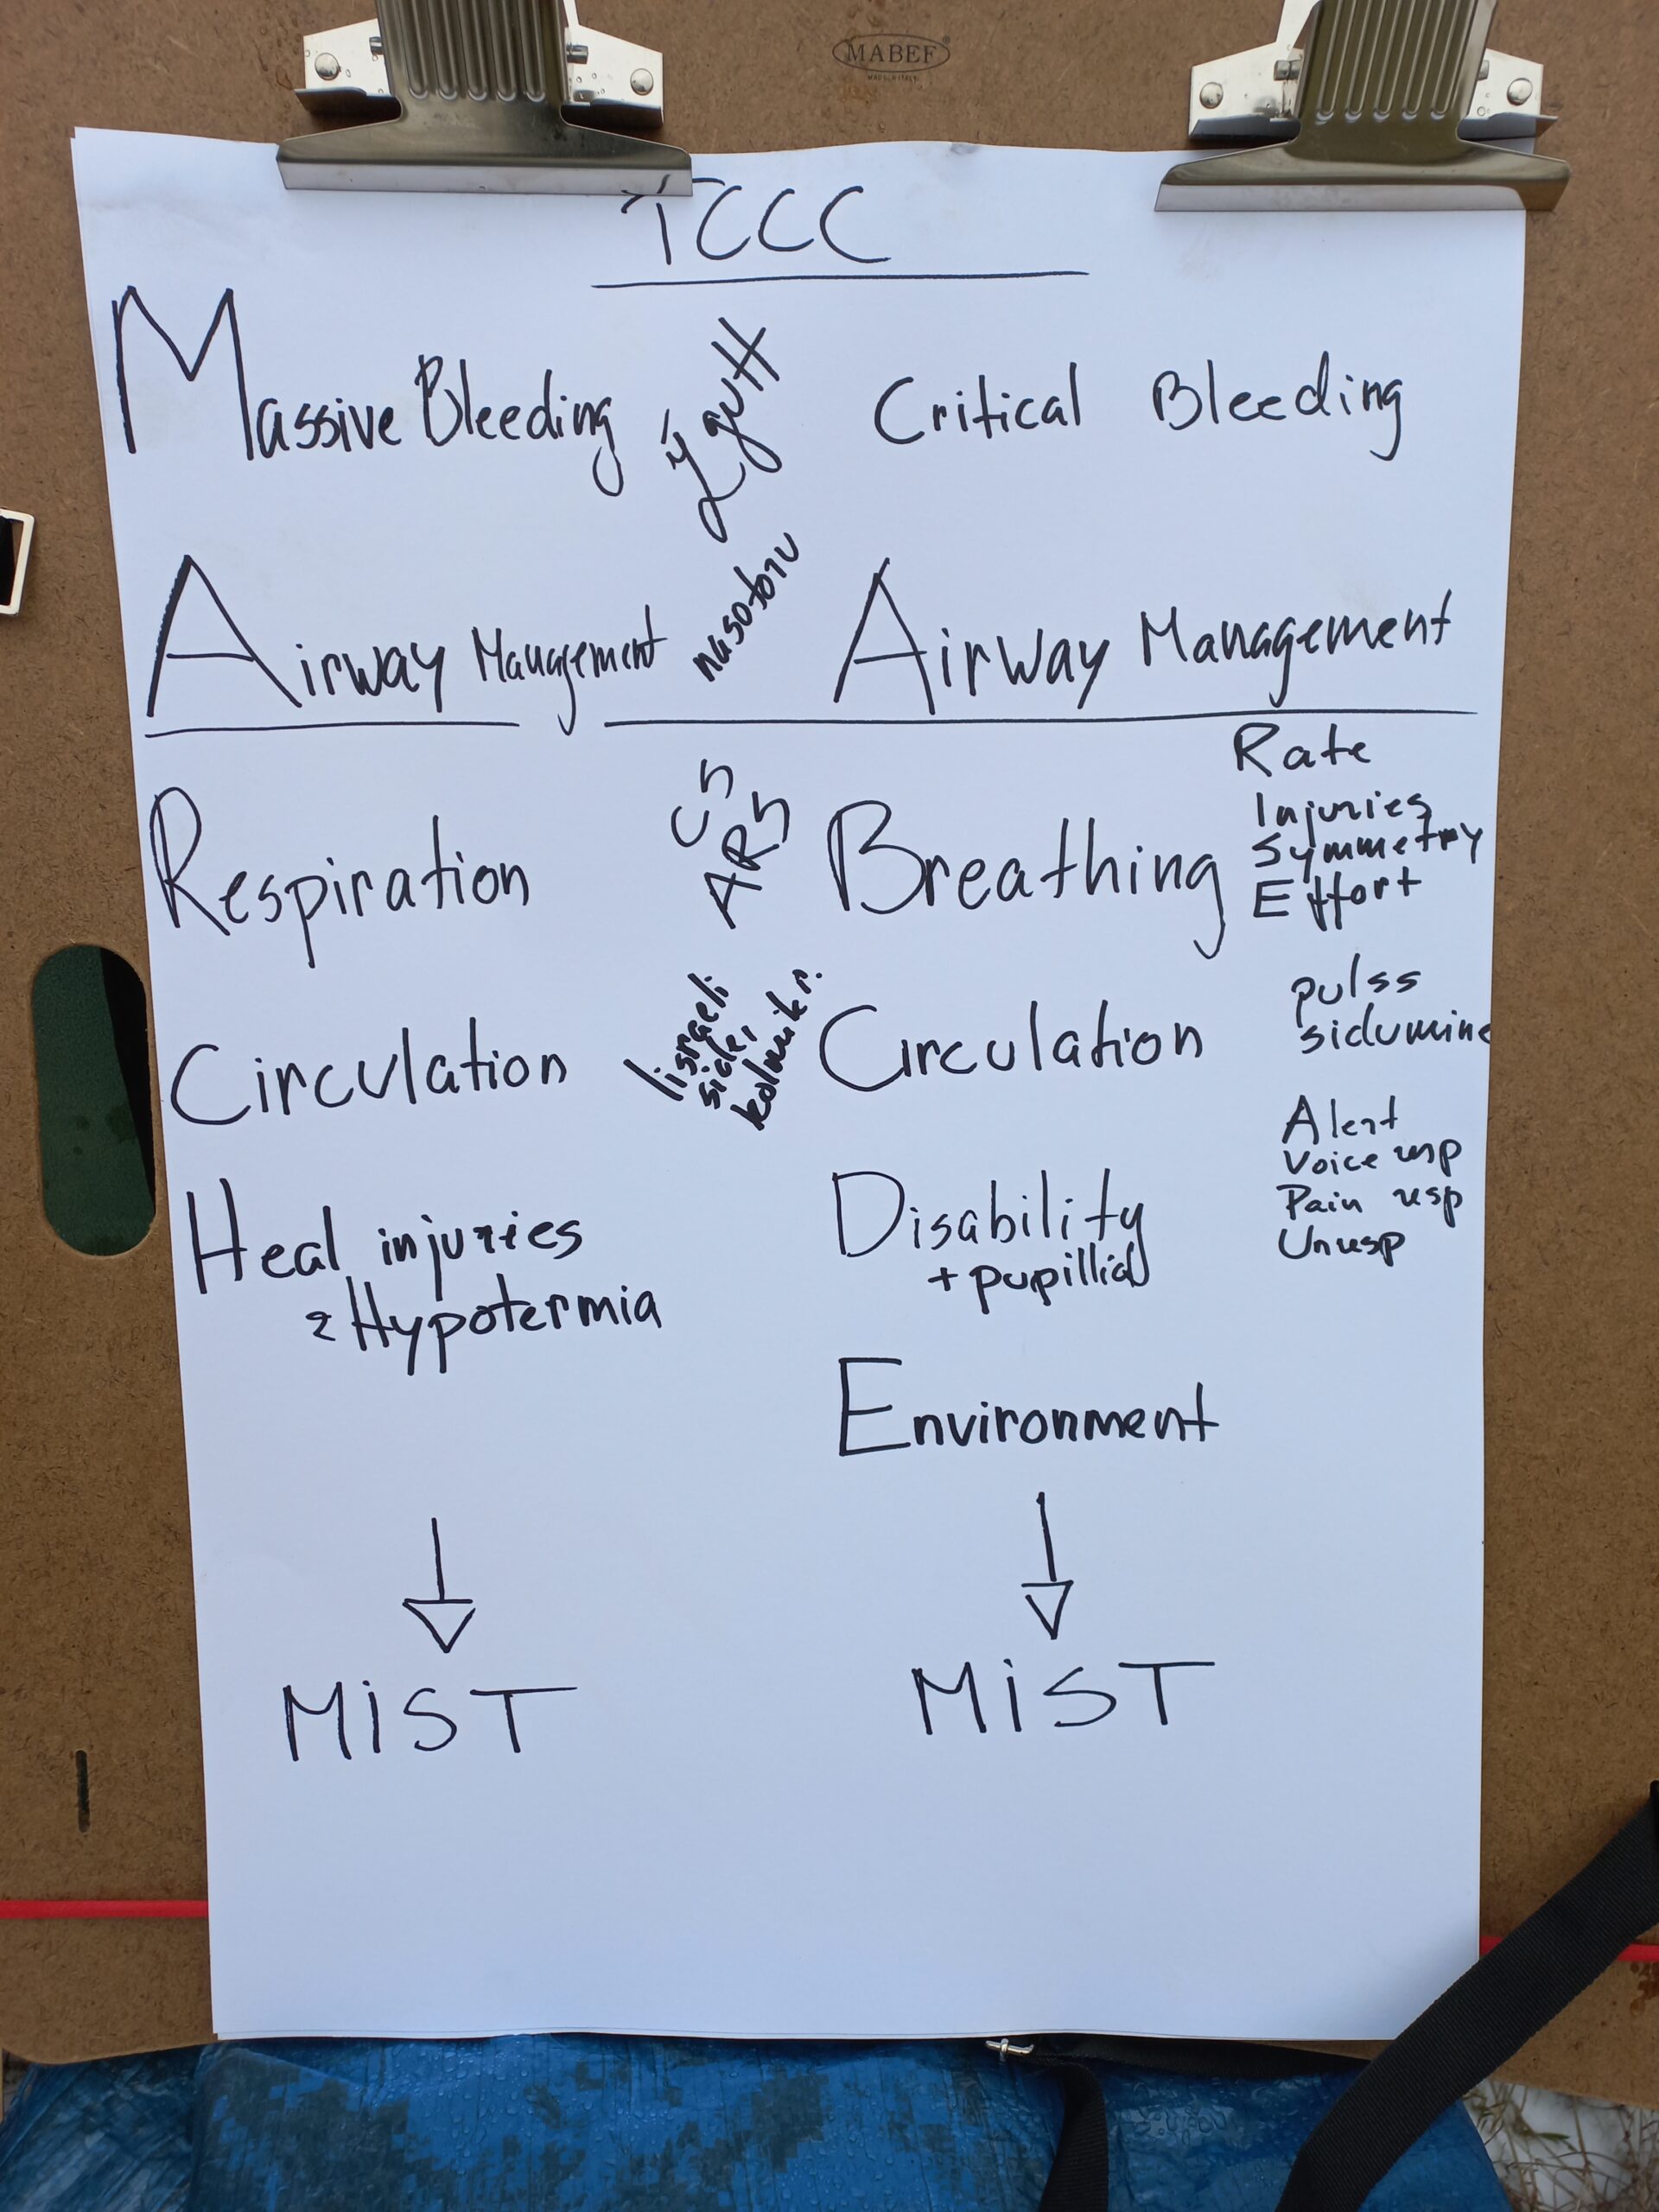 MABEF
TCCC
Massive Bleeding
Žgutt
Critical Bleeding
Airway Management
nasotoru
Airway Management
Respiration
CS
ARS
Breathing
Rate
Injuries
Symmetry
Effort
Circulation
Iisraeli
side,
Circulation
pulss
sidumine
Heal injuries
Hypotermia
Disability
+ pupillid
Alert
Voice resp
Pain resp
Unresp
Environment
MiST
MiST